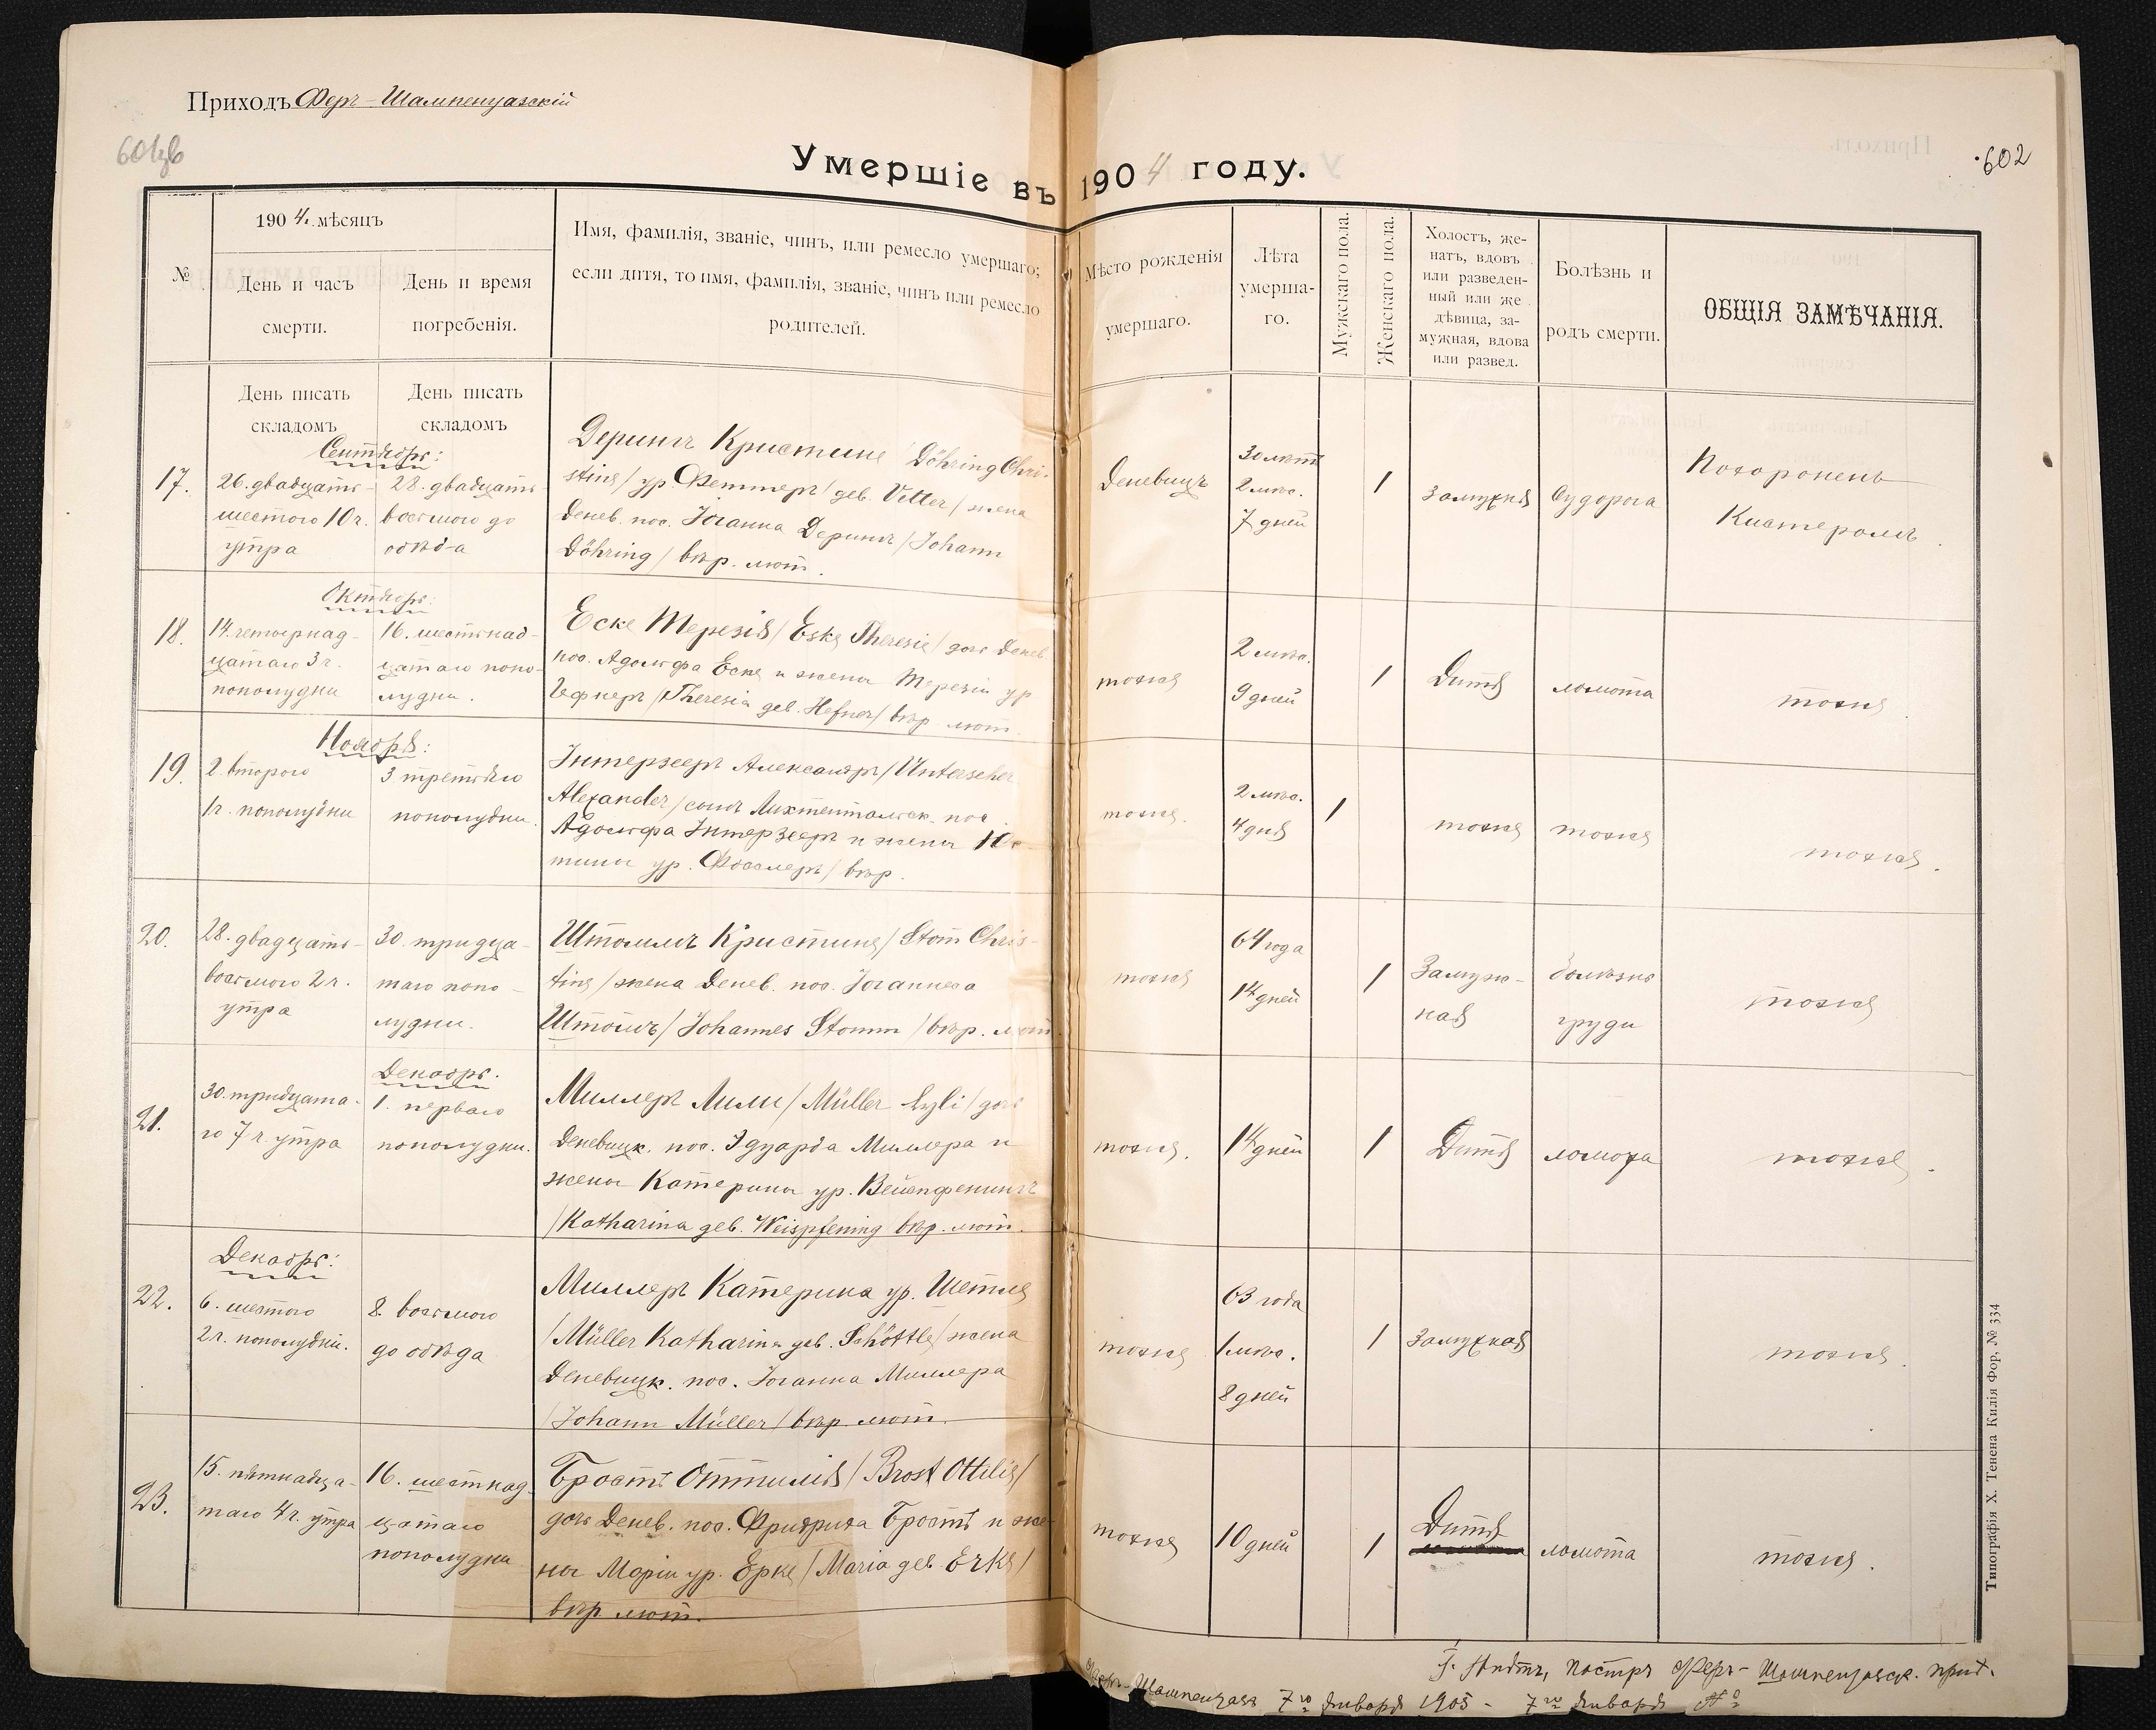 Приходъ Феръ-Шампенуазскій
602
Умершіе въ 1904 году.
№
1904. мѣсяцъ
День и часъ
смерти.
День и время
погребенія.
Имя, фамилія, званіе, чинъ, или ремесло умершаго;
если дитя, то имя, фамилія, званіе, чинъ или ремесло
родителей.
Мѣсто рожденія
умершаго.
Лѣта
умерша-
го.
Мужскаго пола.
Женскаго пола.
Холостъ, же-
натъ, вдовъ
или разведен-
ный или же
дѣвица, за-
мужная, вдова
или развед.
Болѣзнь и
родъ смерти.
ОБЩІЯ ЗАМѢЧАНІЯ.
День писать
складомъ
День писать
складомъ
Сентябрь:
17.
26. двадцать-
шестого 10 ч.
утра
28. двадцать
восьмого до
обѣда
Дерингъ Кристине / Döhring Chri-
stine / ур. Феттеръ / geb. Vetter / жена
Денев. пос. Іоганна Дерингъ / Johann
Döhring / вѣр. лют.
Деневицъ
30 лѣтъ
2 мѣс.
7 дней
1
Замужня
Судорога
Похороненъ
Кистеромъ.
Октябрь:
18.
14. четырнад-
цатаго 3 ч.
пополудни
16. шестнад-
цатаго попо-
лудни.
Еске Терезія / Eske Theresie / дочь Денев.
пос. Адольфа Еске и жены Терезіи ур
Гефнеръ / Theresia geb. Hefner / вѣр. лют.
тоже
2 мѣс.
9 дней
1
Дитя
ломота
тоже.
Ноябрь:
19.
2. второго
1 ч. пополудни
3. третьяго
пополудни.
Унтерзееръ Александръ / Unterseher
Alexander / сынъ Лихтентальск. пос.
Адольфа Унтерзееръ и жены
тины ур. Фосслеръ / вѣр.
тоже.
2 мѣс.
4 дня
1
тоже
тоже
тоже.
20.
28. двадцать-
восьмого 2 ч.
утра
30. тридца-
таго попо-
лудни.
Штоммъ Кристине / Stom̄ Chris-
tine / жена Денев. пос. Іоганнеса
Штом̄ъ / Johannes Stomm / вѣр. лют.
тоже
64 года
14 дней
1
Замуж-
ная
болѣзнь
груди
тоже
21.
30. тридцата-
го 7 ч. утра
Декабрь:
1. перваго
пополудни.
Миллеръ Лили / Müller Lyli / дочь
Деневицк. пос. Эдуарда Миллера и
жены Катерины ур. Вейспфенингъ
/ Katharina geb. Weispfening вѣр. лют.
тоже.
14 дней
1
Дитя
ломота
тоже.
Декабрь:
22.
6. шестого
2 ч. пополудни.
8. восьмого
до обѣда
Миллеръ Катерина ур. Шетле
/ Müller Katharina geb. Schöttle / жена
Деневицк. пос. Іоганна Миллера
/ Johann Müller / вѣр. лют.
тоже
63 года
1 мѣс.
8 дней
1
Замужная
тоже.
23.
15. пятнадца-
таго 4 ч. утра
16. шестнад-
цатаго
пополудни
Бростъ Оттилія / Brost Ottilie /
дочь Денев. пос. Фридриха Бростъ и же-
ны Маріи ур. Ерке / Maria geb. Erke /
вѣр. лют.
тоже
10 дней
1
Дитя
ломота
тоже.
Типографія Х. Тенена Килія Фор, № 334
Пасторъ Феръ-Шампенуазск. прих.
Феръ-Шампенуазъ 7го января 1905 - 7го января